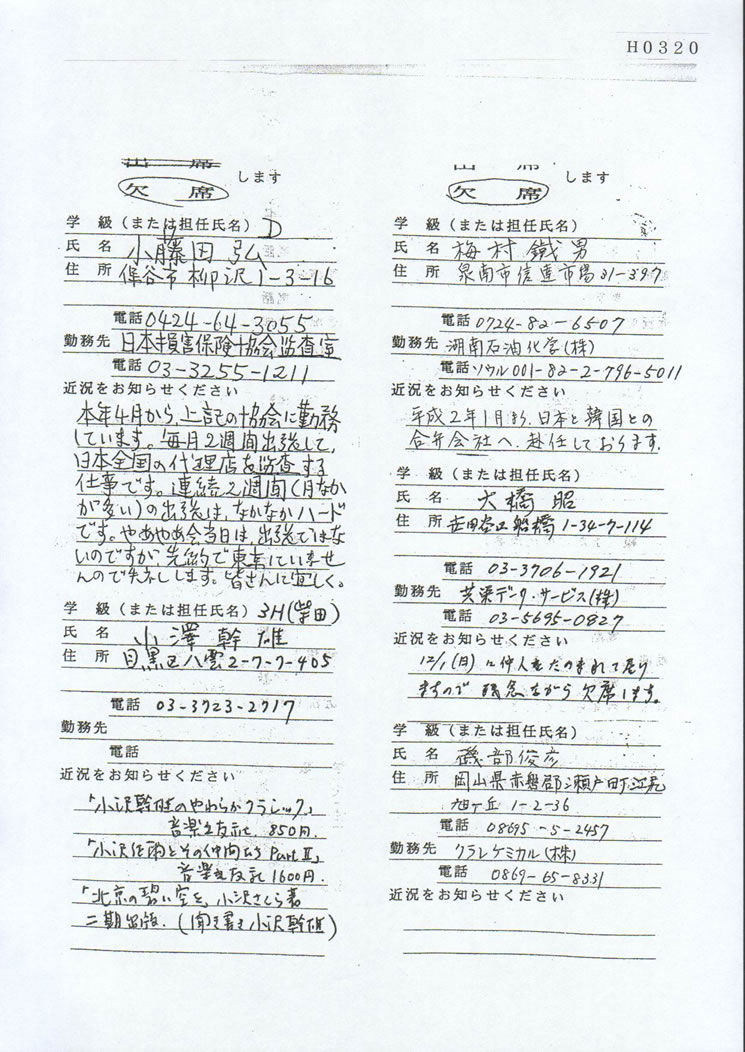 H0320
出席
欠席 します
学級(または担任氏名) D
氏名 小藤田弘
住所 保谷市柳沢1-3-16
電話 0424-64-3055
勤務先 日本損害保険協会監査室
電話 03-3255-1211
近況をお知らせください
本年4月から、上記の協会に勤務
しています。毎月2週間出張して、
日本全国の代理店を監査する
仕事です。連続2週間(月なか
が多い)の出張は、なかなかハード
です。やあやあ会当日は、出張ではな
いのですが、先約で東京にいませ
んので失礼します。皆さんに宜しく。
学級(または担任氏名) 3H(柴田)
氏名 小澤幹雄
住所 目黒区八雲2-7-7-405
電話 03-3723-2717
勤務先
電話
近況をお知らせください
「小沢幹雄のやわらかクラシック」
音楽之友社、850円.
「小沢征爾とその仲間たち Part Ⅱ」
音楽之友社 1600円.
「北京の碧い空を」小沢さくら著
二期出版. (聞き書き小沢幹雄)
出席
欠席 します
学級(または担任氏名)
氏名 梅村鐵男
住所 泉南市信達市場31-397
電話 0724-82-6507
勤務先 湖南石油化学(株)
電話 ソウル001-82-2-796-5011
近況をお知らせください
平成2年1月より、日本と韓国との
合弁会社へ、赴任しております。
学級(または担任氏名)
氏名 大橋昭
住所 1-34-7-114
電話 03-3706-1921
勤務先 共栄データ・サービス(株)
電話 03-5695-0827
近況をお知らせください
12/1(月)に仲人をたのまれて居り
ますので 残念ながら欠席します。
学級(または担任氏名)
氏名 磯部俊彦
住所 岡山県赤磐郡瀬戸町江尻
旭ヶ丘 1-2-36
電話 08695-5-2457
勤務先 クラレケミカル(株)
電話 0869-65-8331
近況をお知らせください